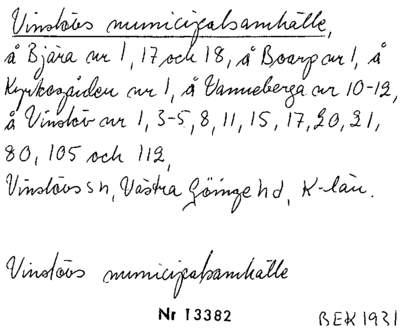 Vinslövs municipalsamhälle,
å Bjära nr 1, 17 och 18, å Boarp nr 1, å
Kyrkogården nr 1, å Vanneberga nr 10-12,
å Vinslöv nr 1, 3-5, 8, 11, 15, 17, 20, 21,
80, 105 och 112,
Vinslövs sn, Västra Göinge hd, K-län.
Vinslövs municipalsamhälle
Nr 13382 BEK 1931